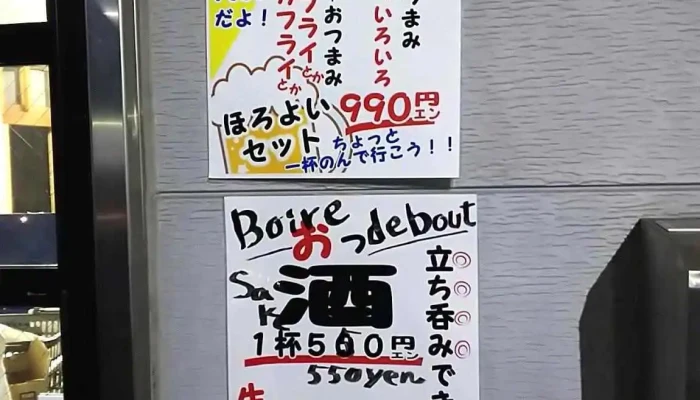 つまみ
いろいろ
おつまみ
フライとか
カフライとか
だよ！
ほろよい
セット
990円
エン
ちょっと
一杯のんで行こう！！
Boire debout
おっ
酒
Sak
立ち呑みでき
1杯550円
エン
550yen
生